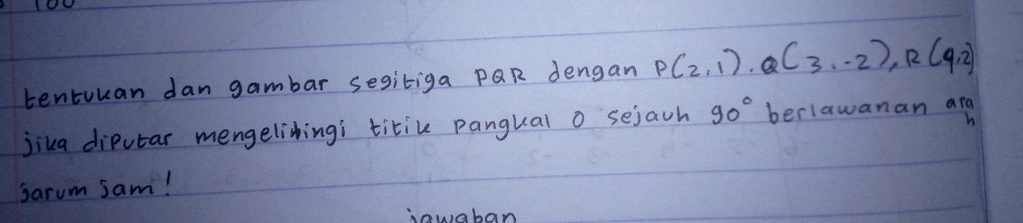 100
tentukan dan gambar segitiga PQR dengan P(2,1). Q(3,-2), R(9,2)
jika diputar mengelilingi titik pangkal O sejauh 90° berlawanan arah
jarum jam!
jawaban